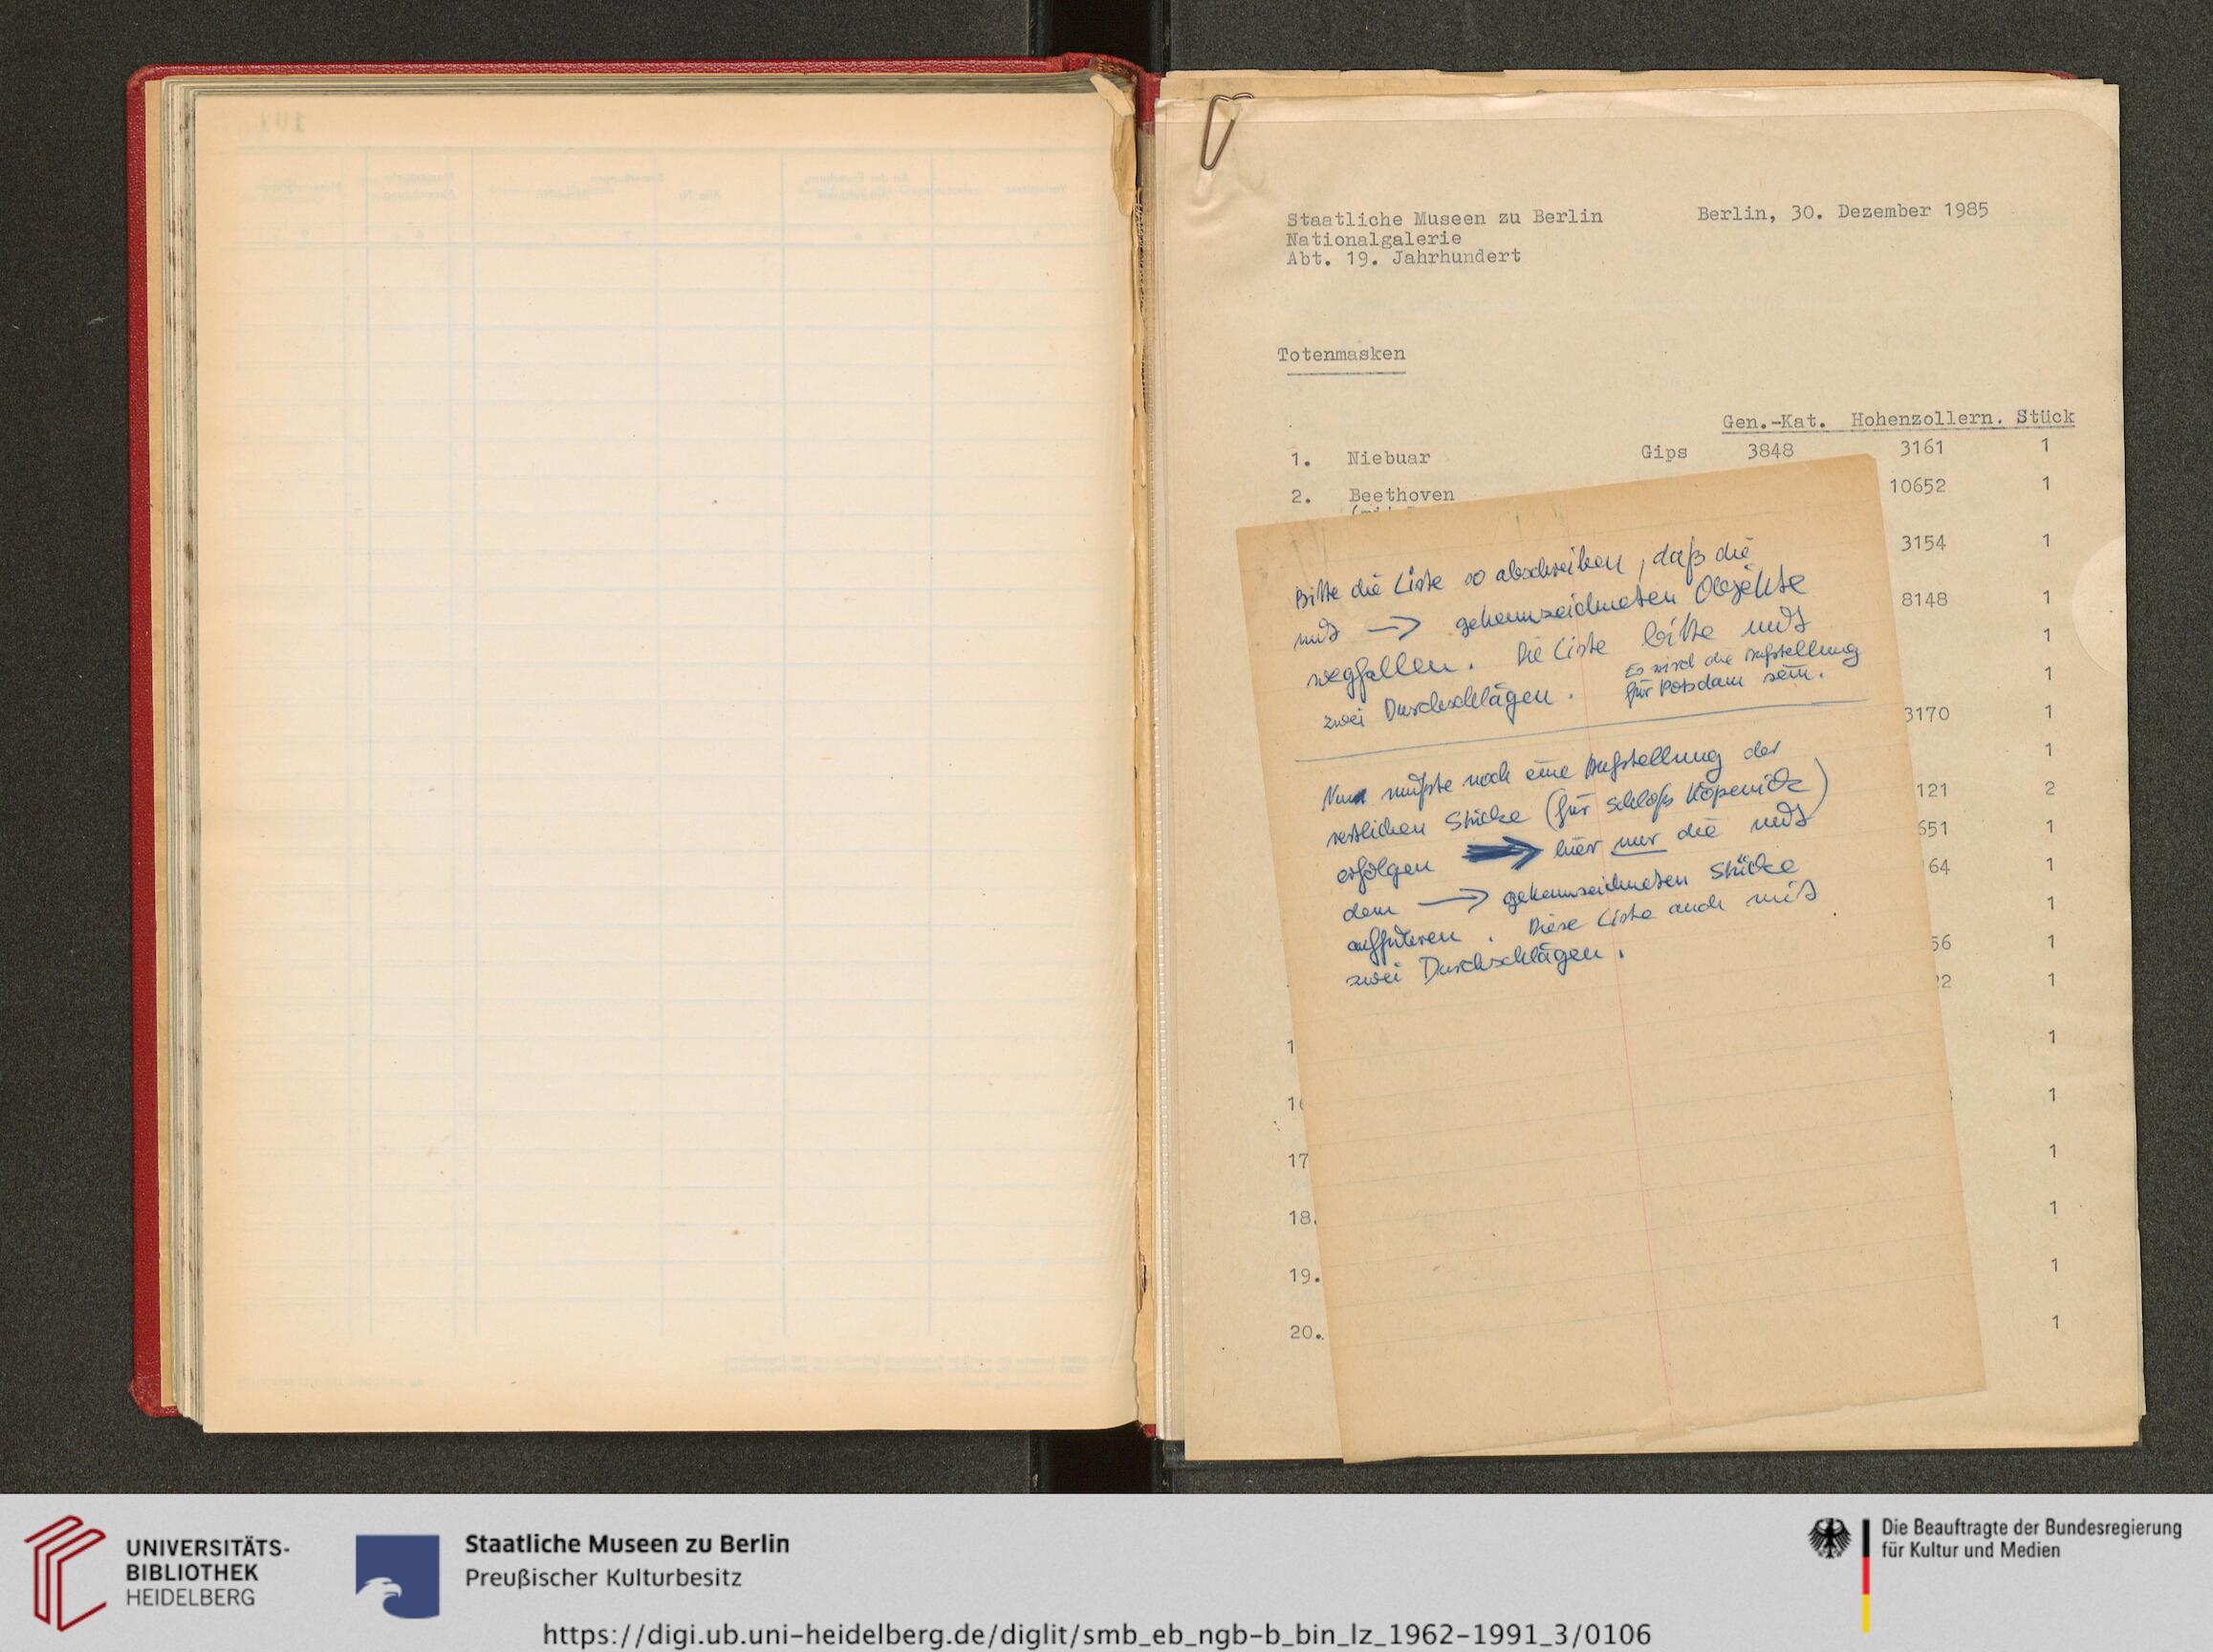 Staatliche Museen zu Berlin Berlin, 30. Dezember 1985
Nationalgalerie
Abt. 19. Jahrhundert
Totenmasken
Gen.-Kat. Hohenzollern. Stück
1. Niebuar Gips 3848 3161 1
2. Beethoven 10652 1
3154 1
8148 1
1
1
3170 1
1
121 2
651 1
64 1
1
56 1
22 1
1
1
17 1
18. 1
19. 1
20. 1
Bitte die Liste so abschreiben, daß die
mit → gekennzeichneten Objekte
wegfallen. Die Liste bitte mit
zwei Durchschlägen. Es wird die Aufstellung
für Potsdam sein.
Nun müßte noch eine Aufstellung der
restlichen Stücke (für Schloß Köpenick)
erfolgen → hier nur die mit
dem → gekennzeichneten Stücke
aufführen. Diese Liste auch mit
zwei Durchschlägen.
UNIVERSITÄTS-
BIBLIOTHEK
HEIDELBERG
Staatliche Museen zu Berlin
Preußischer Kulturbesitz
Die Beauftragte der Bundesregierung
für Kultur und Medien
https://digi.ub.uni-heidelberg.de/diglit/smb_eb_ngb-b_bin_lz_1962-1991_3/0106